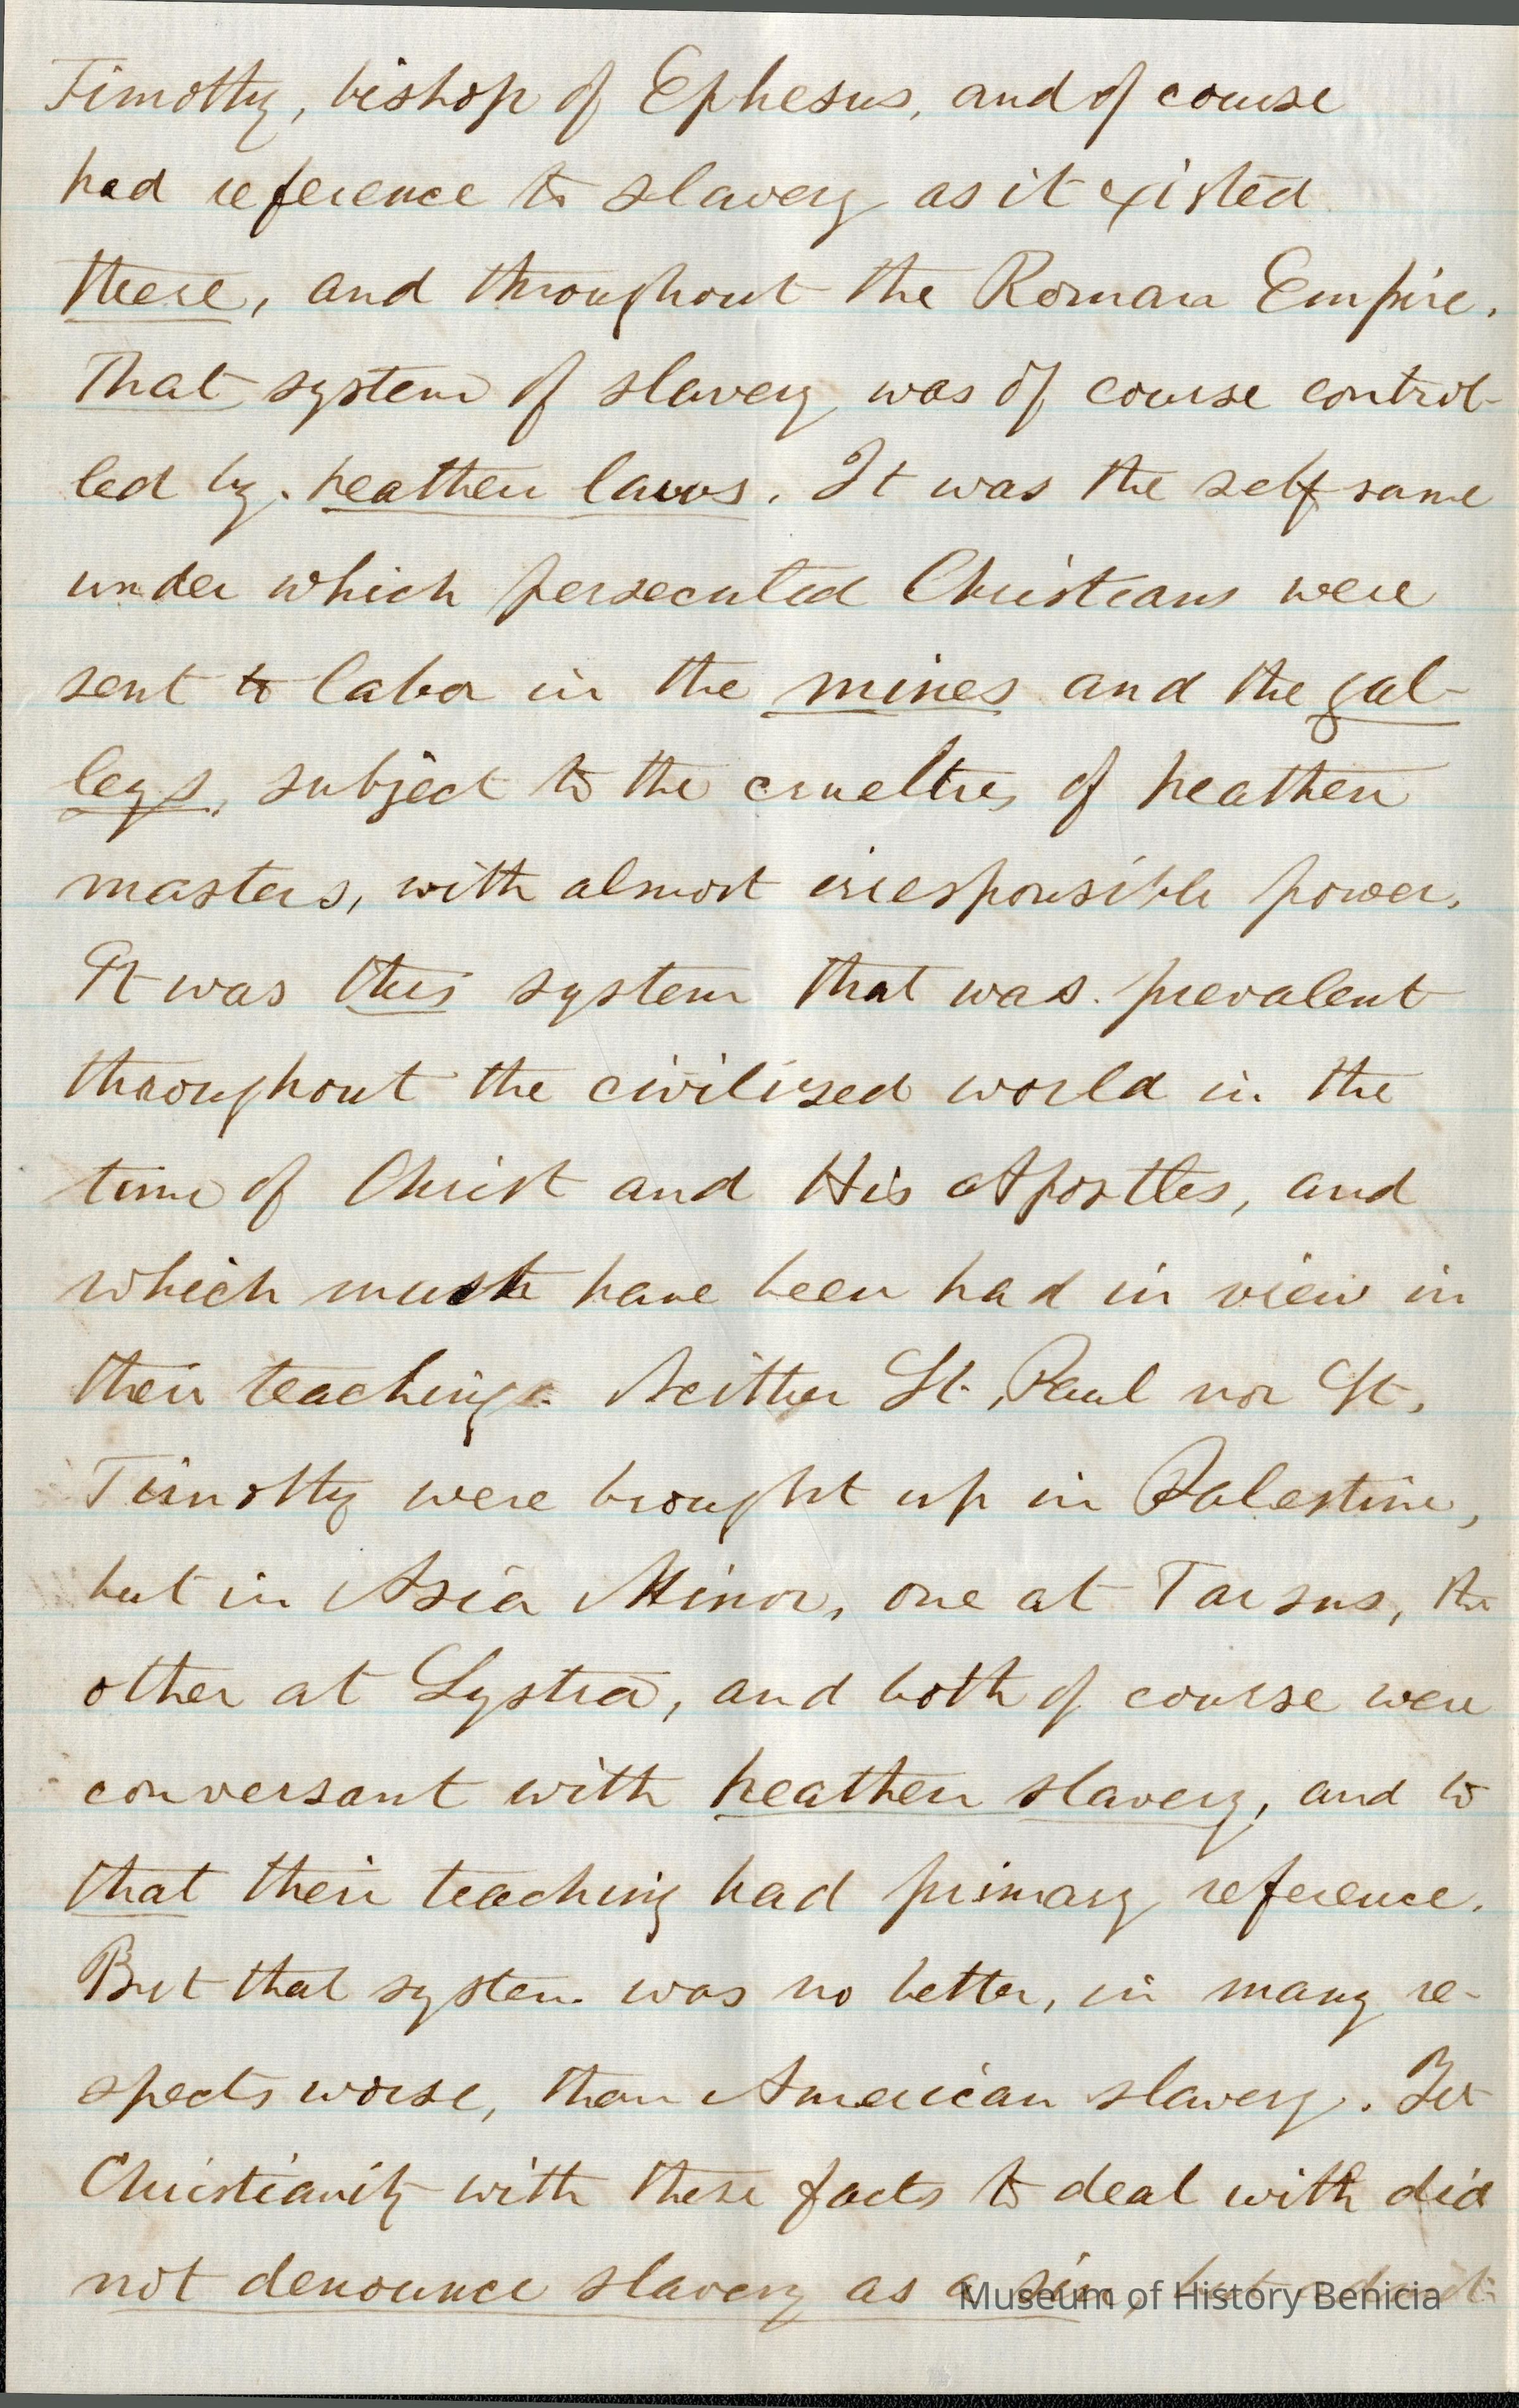 Timothy, bishop of Ephesus, and of course
had reference to slavery as it existed
there, and throughout the Roman Empire.
That system of slavery was of course control-
led by heathen laws. It was the self same
under which persecuted Christians were
sent to labor in the mines and the gal-
leys, subject to the cruelties of heathen
masters, with almost irresponsible power.
It was this system that was prevalent
throughout the civilized world in the
time of Christ and His Apostles, and
which must have been had in view in
their teaching. Neither St. Paul nor St.
Timothy were brought up in Palestine,
but in Asia Minor, one at Tarsus, the
other at Lystra, and both of course were
conversant with heathen slavery, and to
that their teaching had primary reference.
But that system was no better, in many re-
spects worse, than American slavery. Yet
Christianity with these facts to deal with did
not denounce slavery as a sin, but
Museum of History Benicia